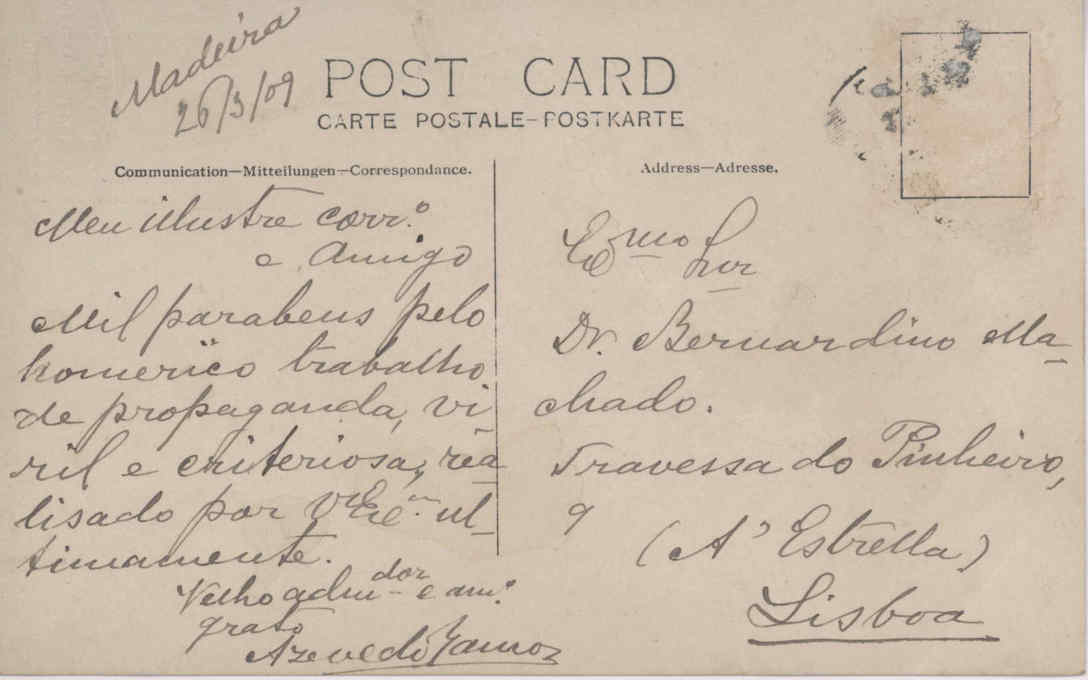 Madeira
26/3/09
POST CARD
CARTE POSTALE-POSTKARTE
Communication—Mitteilungen—Correspondance.
Meu illustre corr.º
e Amigo
Mil parabens pelo
homerico trabalho
de propaganda, vi
ril e criteriosa, rea
lisado por V. Exc.ª ul-
timamente.
Velho adm.dor e am.º
grato
Azevedo Ramos
Address—Adresse.
Ex.mo Snr
Dr. Bernardino Ma-
chado.
Travessa do Pinheiro,
9
(A' Estrella)
Lisboa